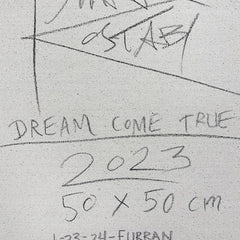 OSTABI
DREAM COME TRUE
2023
50 X 50 cm
1-23-24-FURRAN